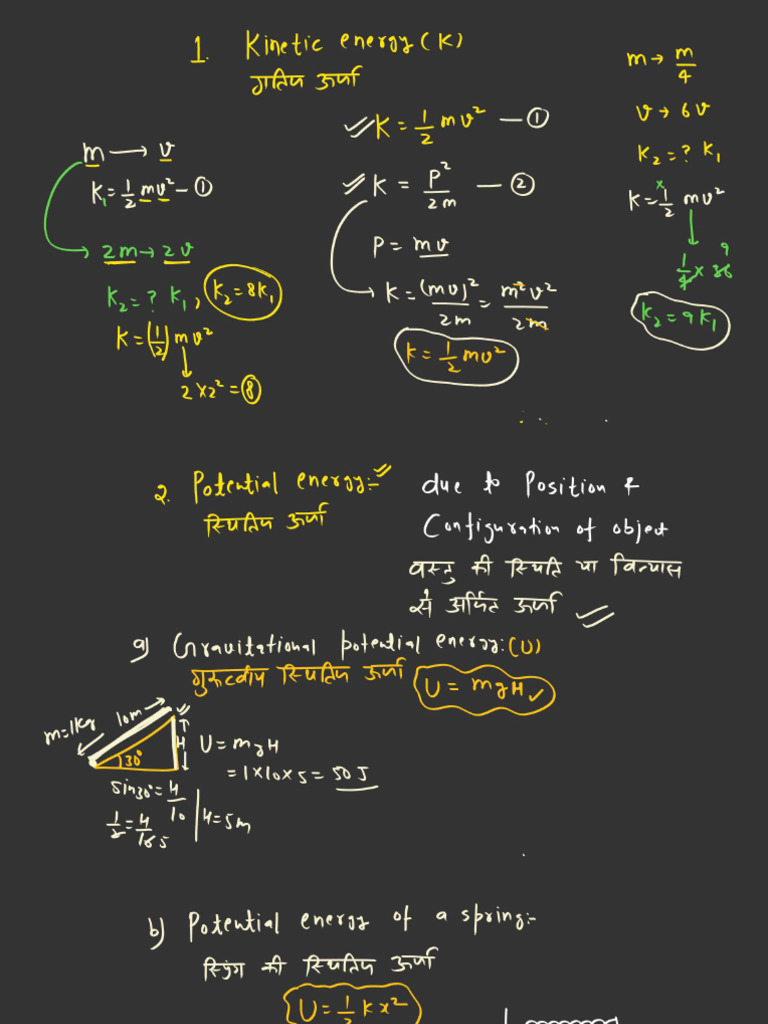 1. Kinetic energy (K)
गतिज ऊर्जा
m → v
K₁ = 1/2 mv² - ①
2m → 2v
K₂ = ? K₁, K₂ = 8K₁
K = (1/2) mv²
2 × 2² = 8
K = 1/2 mv² — ①
K = P²/2m — ②
P = mv
K = (mv)²/2m = m²v²/2m
K = 1/2 mv²
m → m/4
v → 6v
K₂ = ? K₁
K = 1/2 mv²
1/4 × 36 9
K₂ = 9K₁
2. Potential energy:- due to Position &
स्थितिज ऊर्जा
Configuration of object
वस्तु की स्थिति या विन्यास
से अर्जित ऊर्जा
a) Gravitational potential energy: (U)
गुरुत्वीय स्थितिज ऊर्जा
U = mgH
m=1kg
10m
H
30°
U = mgH
= 1×10×5 = 50 J
sin30° = H/10
1/2 = H/10 5
H = 5m
b) Potential energy of a spring:-
स्प्रिंग की स्थितिज ऊर्जा
U = 1/2 kx²